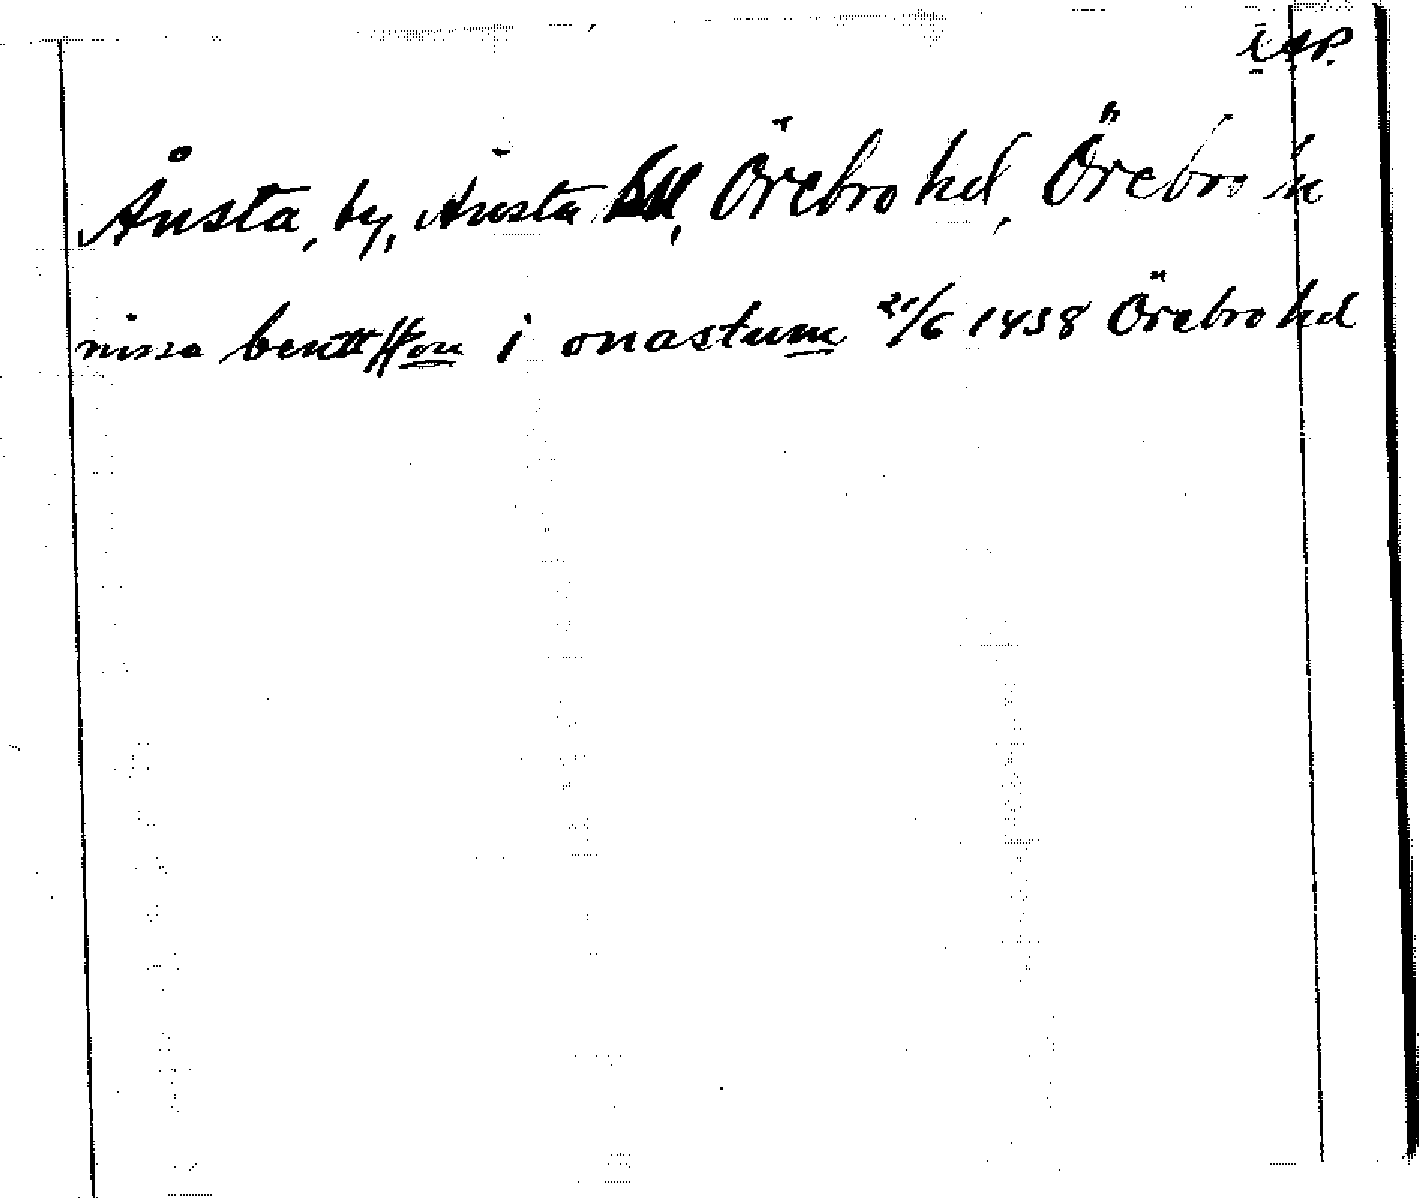 Ånsta, by, Ånsta sn, Örebro hd, Örebro n
nissa bentt sson i onastum 21/6 1458 Örebro hd